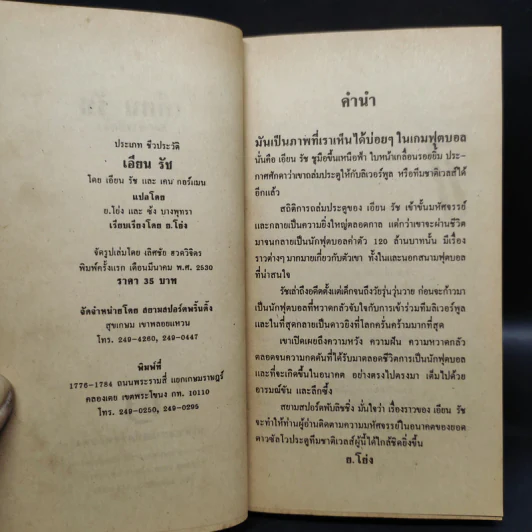 ประเภท ชีวประวัติ
เอียน รัช
โดย เอียน รัช และ เคน กอร์แมน
แปลโดย
ย.โย่ง และ ซ้ง บางพุทรา
เรียบเรียงโดย ย.โย่ง
จัดรูปเล่มโดย เลิศชัย สวดวิจิตร
พิมพ์ครั้งแรก เดือนมีนาคม พ.ศ. 2530
ราคา 35 บาท
จัดจำหน่ายโดย สยามสปอร์ตพริ้นติ้ง
สุขเกษม เขาพลอยแหวน
โทร. 249-4260, 249-0447
พิมพ์ที่
1776-1784 ถนนพระรามสี่ แยกเกษมราษฎร์
คลองเตย เขตพระโขนง กท. 10110
โทร. 249-0250, 249-0295
คำนำ
มันเป็นภาพที่เราเห็นได้บ่อยๆ ในเกมฟุตบอล
นั่นคือ เอียน รัช ชูมือขึ้นเหนือฟ้า ใบหน้าเกลื่อนรอยยิ้ม ประ-
กาศศักดาว่าเขาถล่มประตูให้กับลิเวอร์พูล หรือทีมชาติเวลส์ได้
อีกแล้ว
สถิติการถล่มประตูของ เอียน รัช เข้าขั้นมหัศจรรย์
และกลายเป็นความยิ่งใหญ่ตลอดกาล แต่กว่าเขาจะผ่านชีวิต
มาจนกลายเป็นนักฟุตบอลค่าตัว 120 ล้านบาทนั้น มีเรื่อง
ราวต่างๆ มากมายเกี่ยวกับตัวเขา ทั้งในและนอกสนามฟุตบอล
ที่น่าสนใจ
รัชเล่าถึงอดีตตั้งแต่เด็กจนถึงวัยรุ่นวุ่นวาย ก่อนจะก้าวมา
เป็นนักฟุตบอลที่หวาดกลัวจับใจกับการเข้าร่วมทีมลิเวอร์พูล
และในที่สุดกลายเป็นดาวยิงที่โลกครั่นคร้ามมากที่สุด
เขาเปิดเผยถึงความหวัง ความฝัน ความหวาดกลัว
ตลอดจนความกดดันที่ได้รับมาตลอดชีวิตการเป็นนักฟุตบอล
และที่จะเกิดขึ้นในอนาคต อย่างตรงไปตรงมา เต็มไปด้วย
อารมณ์ขัน และลึกซึ้ง
สยามสปอร์ตพับลิชชิ่ง มั่นใจว่า เรื่องราวของ เอียน รัช
จะทำให้ท่านผู้อ่านติดตามความมหัศจรรย์ในอนาคตของยอด
ดาวซัลโวประตูทีมชาติเวลส์ผู้นี้ได้ใกล้ชิดยิ่งขึ้น
ย.โย่ง